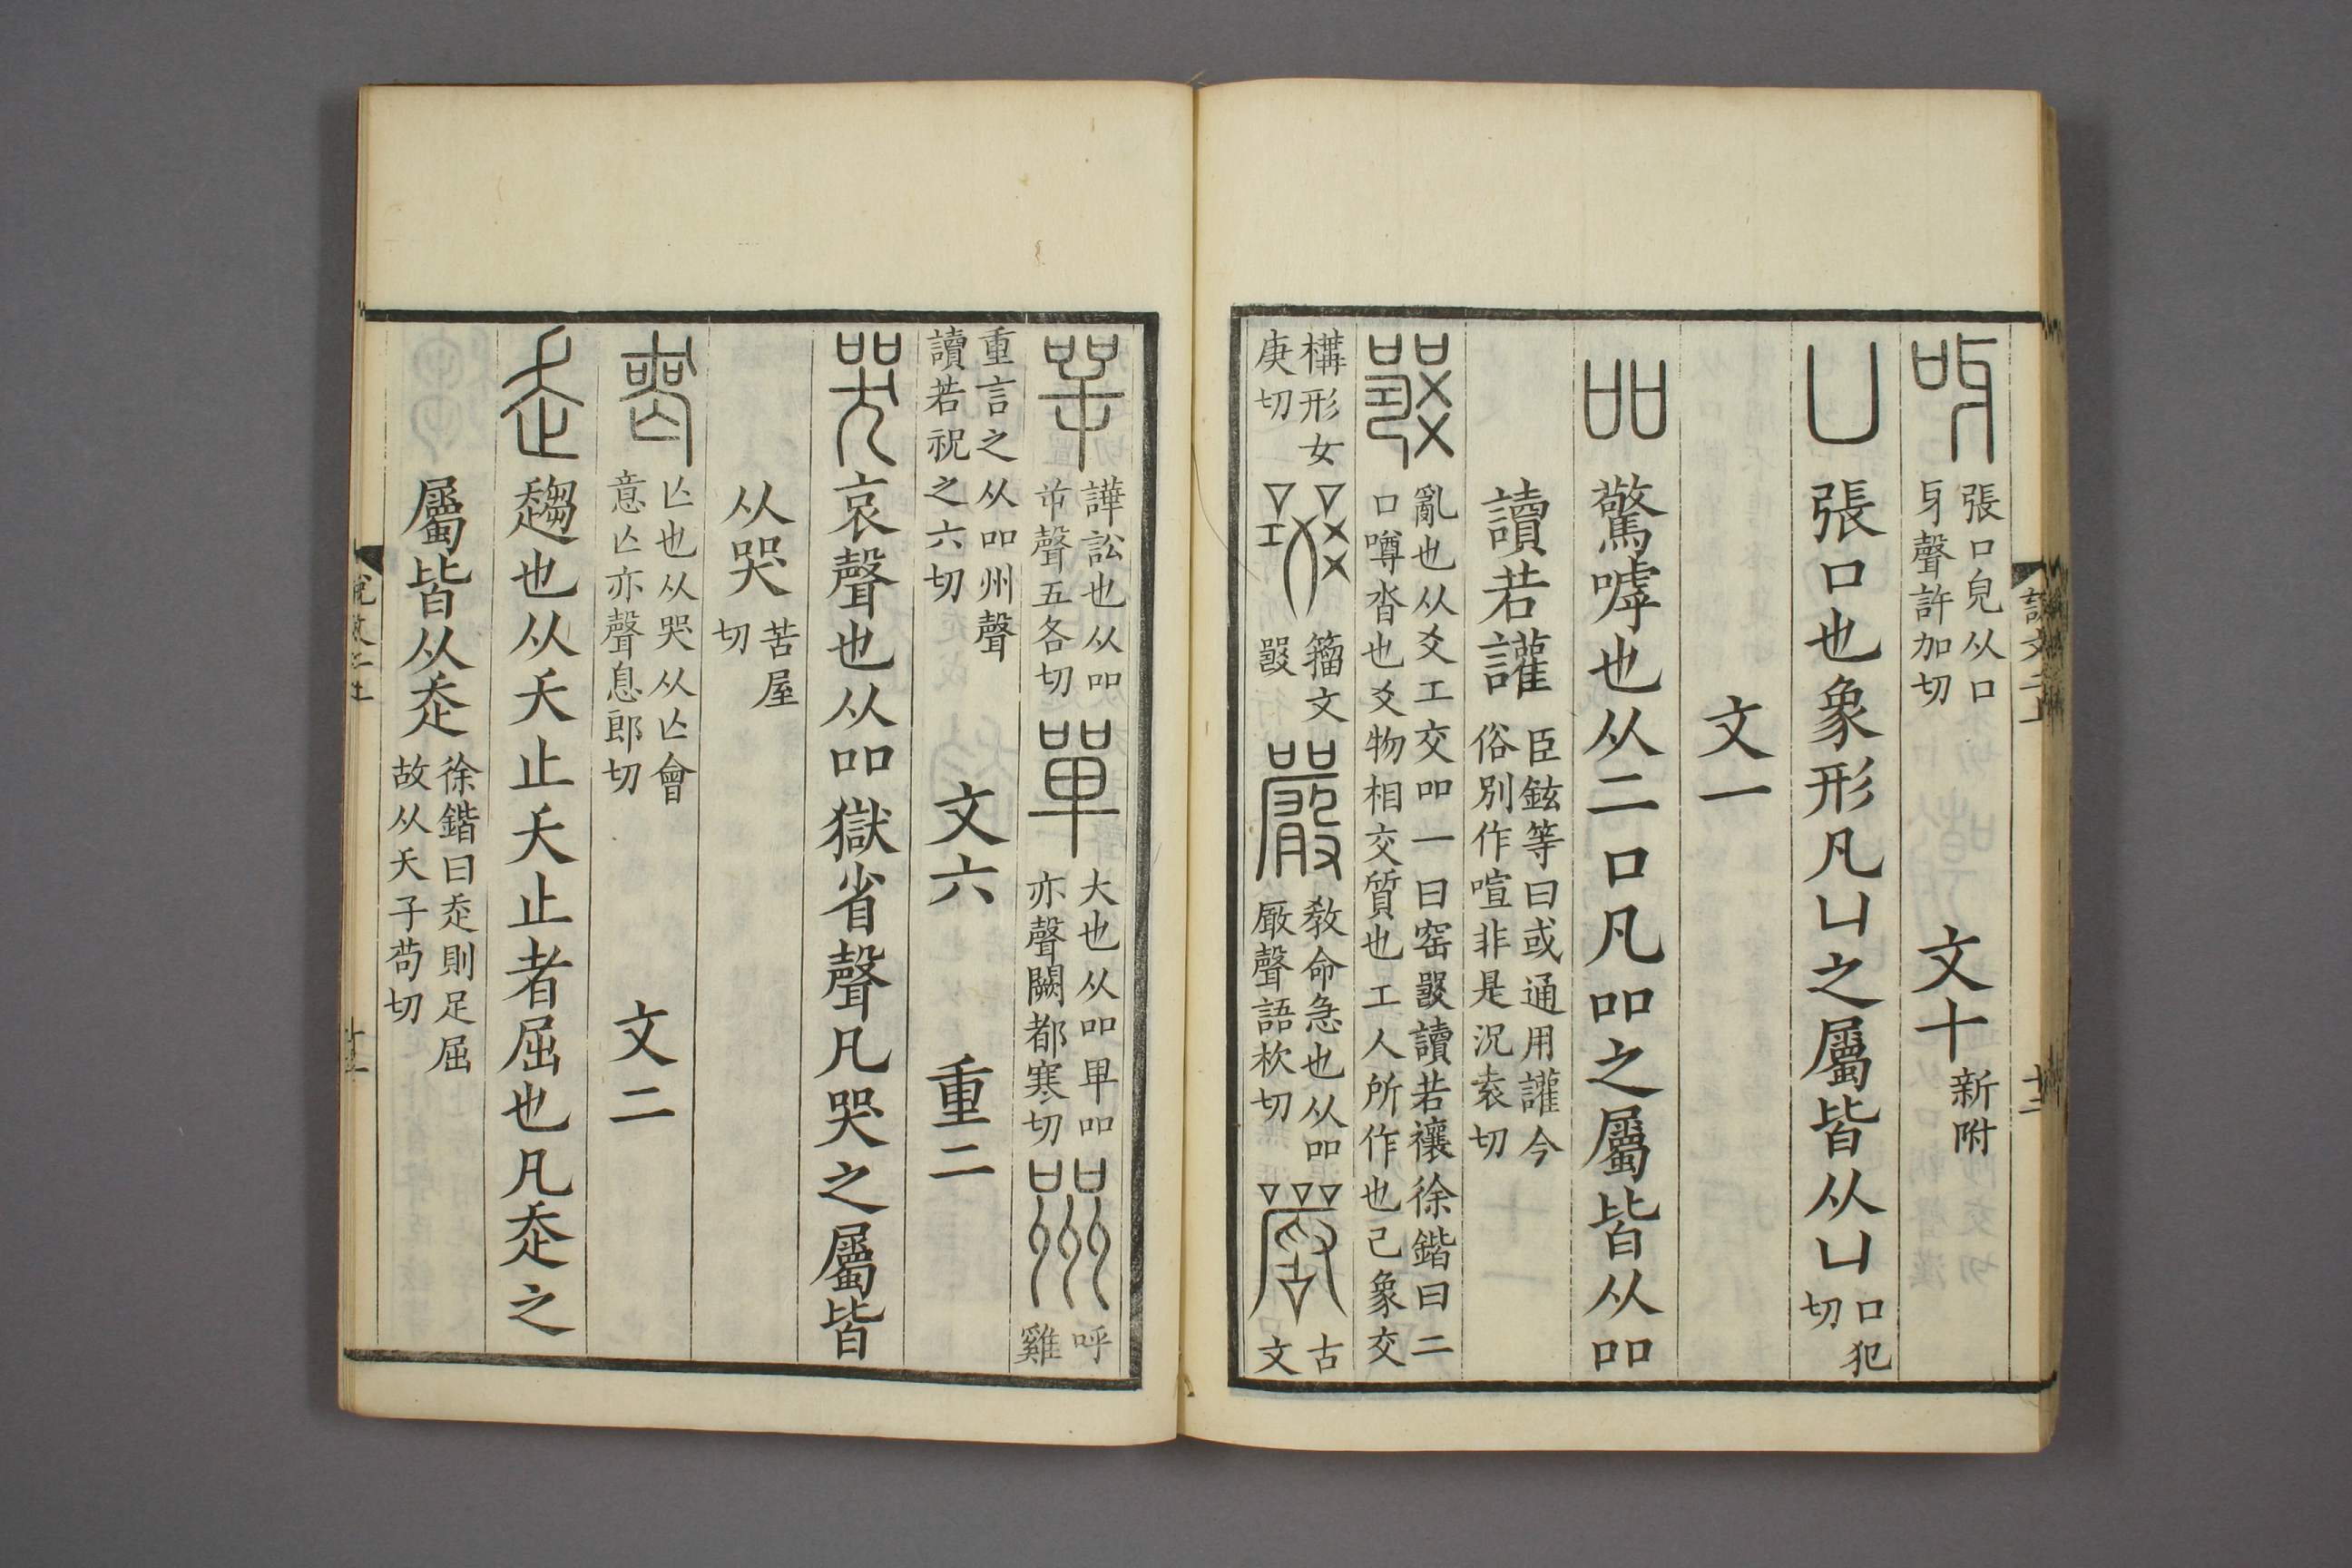 呀張口皃从口牙聲許加切 文十新附
凵張口也象形凡凵之屬皆从凵口犯切
文一
吅驚嘑也从二口凡吅之屬皆从吅
讀若讙臣鉉等曰或通用讙今俗別作喧非是況袁切
𤕦亂也从爻工交吅一曰窒𤕦讀若禳徐鍇曰二口噂沓也爻物相交質也工人所作也己象交
構形女庚切 籀文𤕦 嚴教命急也从吅厰聲語杴切 古文
咢譁訟也从吅屰聲五各切 單大也从吅𠦒吅亦聲闕都寒切 喌呼雞
重言之从吅州聲讀若祝之六切 文六 重二
哭哀聲也从吅獄省聲凡哭之屬皆
从哭苦屋切
喪亾也从哭从亾會意亾亦聲息郎切 文二
走趨也从夭止夭止者屈也凡走之
屬皆从走徐鍇曰走則足屈故从夭子苟切